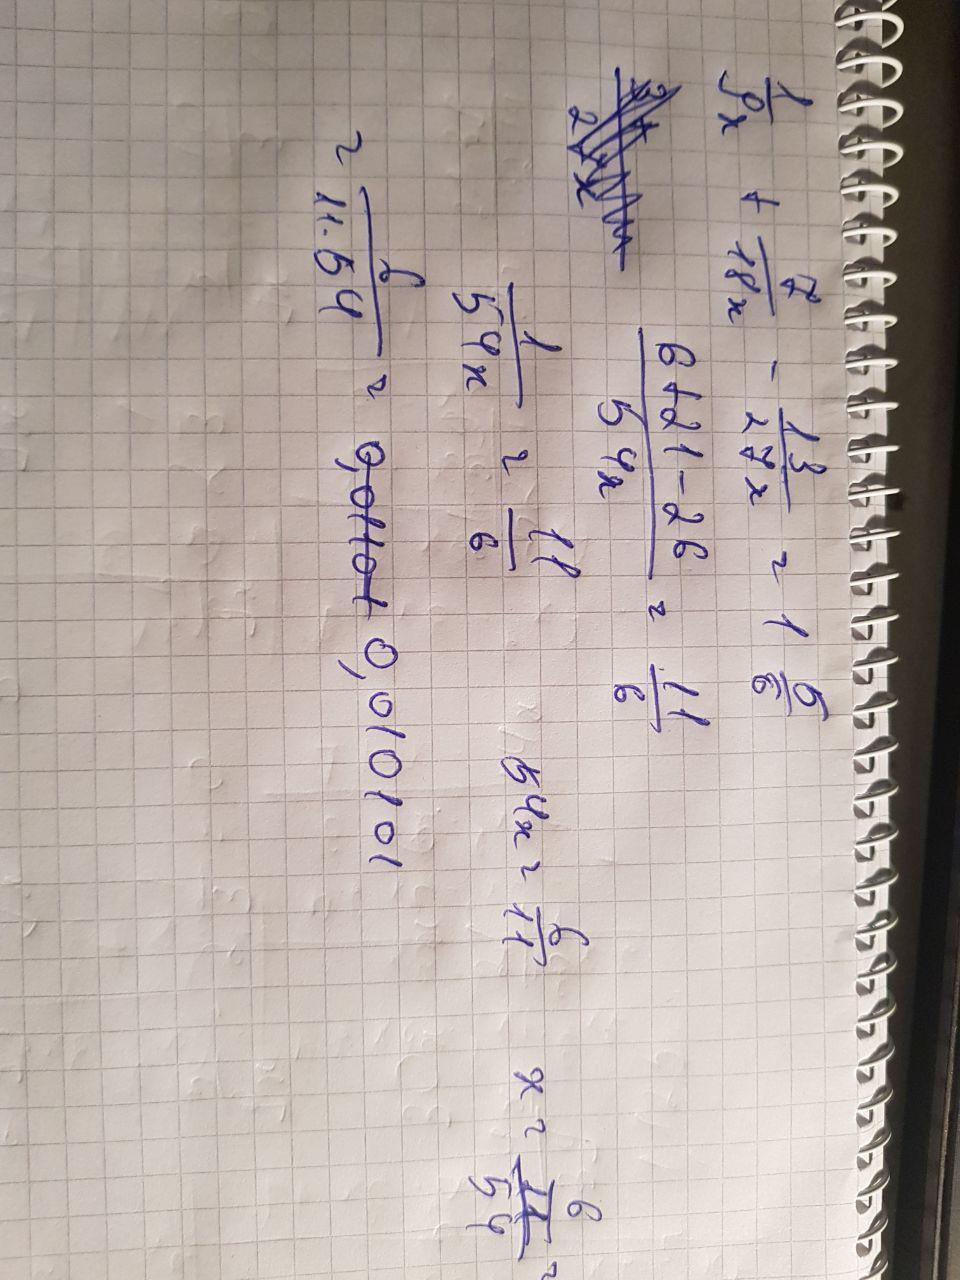 1/9x + 7/18x - 13/27x = 1 5/6
(6+21-26)/54x = 11/6
1/54x = 11/6 54x = 6/11 x = (6/11)/54 =
= 6/(11·54) = 0,01101 0,010101